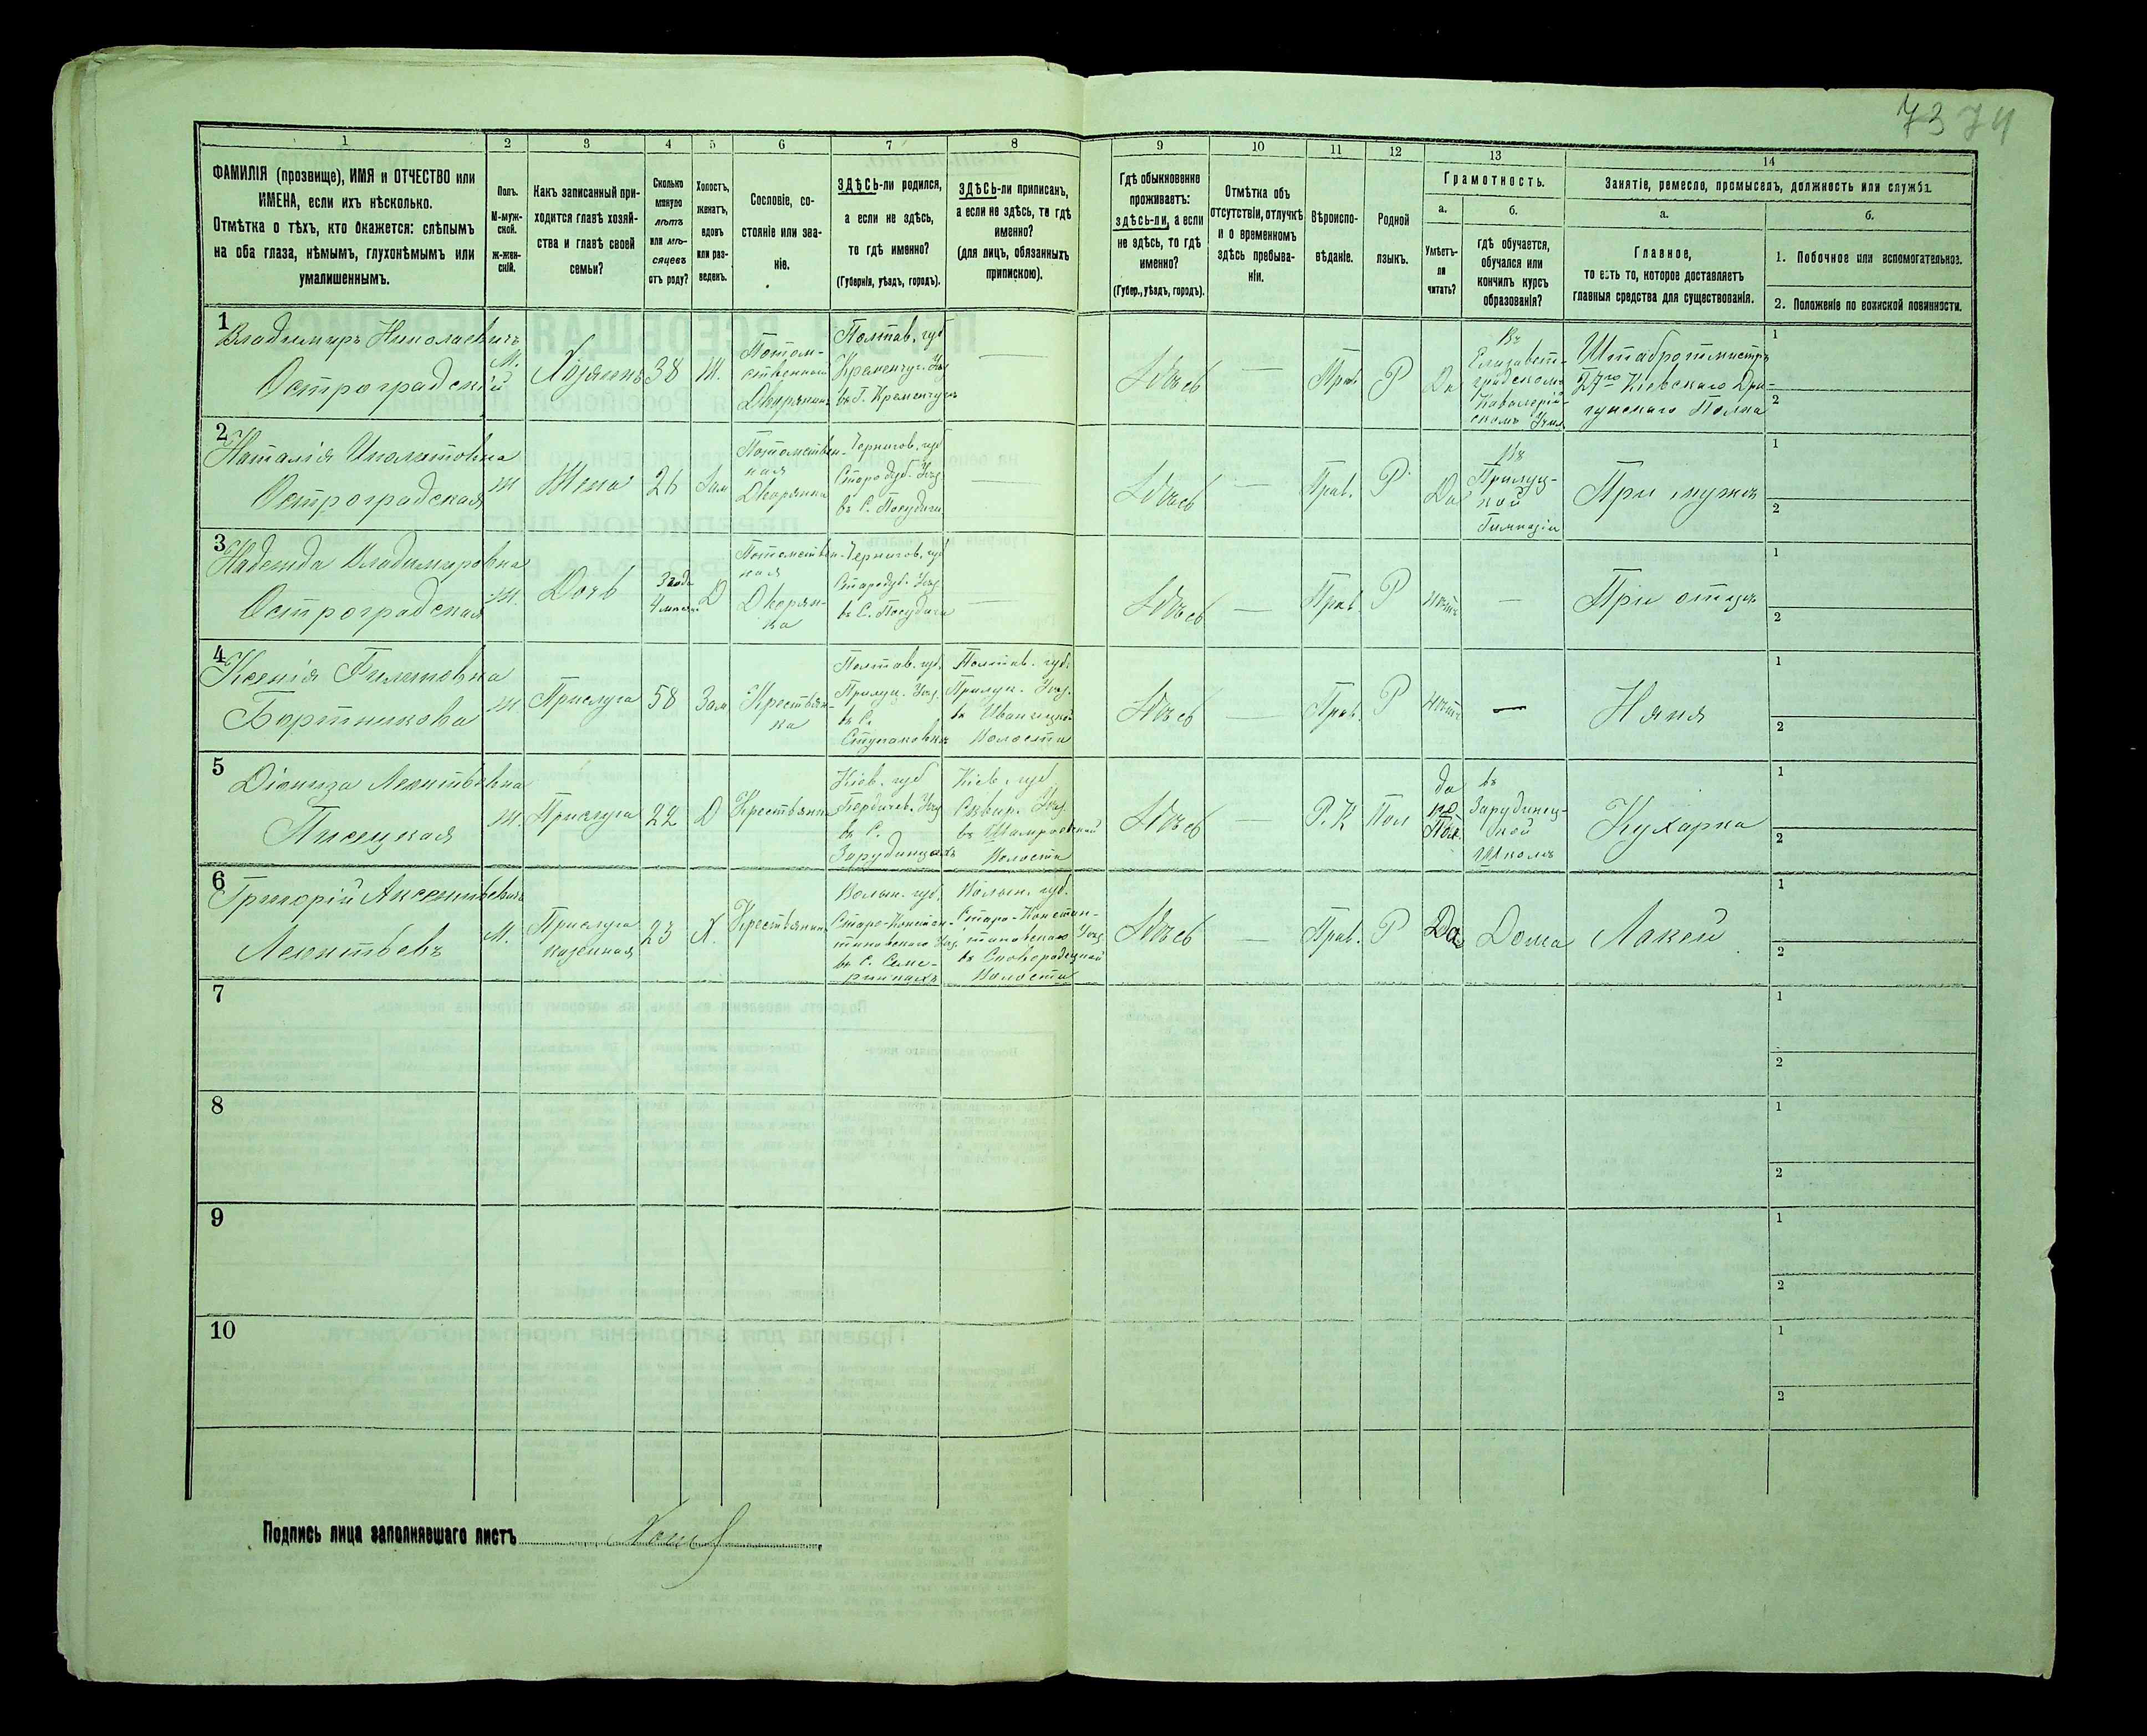 73 74
1 2 3 4 5 6 7 8 9 10 11 12 13 14
ФАМИЛІЯ (прозвище), ИМЯ и ОТЧЕСТВО или
ИМЕНА, если ихъ нѣсколько.
Отмѣтка о тѣхъ, кто окажется: слѣпымъ
на оба глаза, нѣмымъ, глухонѣмымъ или
умалишеннымъ.
Полъ.
М-муж-
ской.
ж-жен-
скій.
Какъ записанный при-
ходится главѣ хозяй-
ства и главѣ своей
семьи?
Сколько
минуло
лѣтъ
или мѣ-
сяцевъ
отъ роду?
Холостъ,
женатъ,
вдовъ
или раз-
веденъ.
Сословіе, со-
стояніе или зва-
ніе.
ЗДѢСЬ-ли родился,
а если не здѣсь,
то гдѣ именно?
(Губернія, уѣздъ, городъ).
ЗДѢСЬ-ли приписанъ,
а если не здѣсь, то гдѣ
именно?
(для лицъ, обязанныхъ
припискою).
Гдѣ обыкновенно
проживаетъ:
здѣсь-ли, а если
не здѣсь, то гдѣ
именно?
(Губер., уѣздъ, городъ).
Отмѣтка объ
отсутствіи, отлучкѣ
и о временномъ
здѣсь пребыва-
ніи.
Вѣроиспо-
вѣданіе.
Родной
языкъ.
Грамотность.
а.
Умѣетъ-
ли
читать?
б.
гдѣ обучается,
обучался или
кончилъ курсъ
образованія?
Занятіе, ремесло, промыселъ, должность или служба.
а.
Главное,
то есть то, которое доставляетъ
главныя средства для существованія.
б.
1. Побочное или вспомогательное.
2. Положеніе по воинской повинности.
1
Владимиръ Николаевичъ
Остроградскій
М.
Хозяинъ
38
Ж.
Потом-
ственный
Дворянинъ
Полтав. губ
Кременчуг. Уѣз
въ г. Кременчугѣ
—
Здѣсь
—
Прав.
Р
Да
Въ
Елизавет-
градскомъ
Кавалерій-
скомъ Учил
Штабротмистръ
27го Кіевскаго Дра-
гунскаго Полка
1
2
2
Наталія Иполитовна
Остроградская
Ж
Жена
26
Зам
Потомствен-
ная
Дворянка
Чернигов. губ
Стародуб. Уѣз
въ С. Посудичи
—
Здѣсь
—
Прав.
Р.
Да
Въ
Прилуц-
кой
Гимназіи
При мужѣ
1
2
3
Надежда Владимировна
Остроградская
Ж.
Дочь
3 года
4 мѣсяца
Д
Потомствен-
ная
Дворян-
ка
Чернигов. губ
Стародуб. Уѣз
въ С. Посудичи
—
Здѣсь
—
Прав.
Р
Нѣтъ
—
При отцѣ
1
2
4
Ксенія Филатовна
Бортникова
Ж
Прислуга
58
Зам
Крестьян-
ка
Полтав. губ.
Прилуц. Уѣз.
въ С.
Ступаковкѣ
Полтав. губ.
Прилуц. Уѣз.
въ Иваницкой
Волости
Здѣсь
—
Прав.
Р
Нѣтъ
—
Няня
1
2
5
Діониза Леонтьевна
Писецкая
Ж.
Прислуга
22
Д
Крестьянка
Кіев. губ
Бердичев. Уѣз
въ С.
Зарудинцахъ
Кіев. губ
Сквир. Уѣз.
въ Шамраевской
Волости
Здѣсь
—
Р.К
Пол
да
по
Пол.
въ
Зарудинец-
кой
Школѣ
Кухарка
1
2
6
Григорій Аксентьевичъ
Леонтьевъ
М.
Прислуга
казенная
23
Х.
Крестьянинъ
Волын. губ.
Старо-Констан-
тиновскаго Уѣз.
въ С. Семе-
ринкахъ
Волын. губ.
Старо-Констан-
тиновскаго Уѣз
въ Сковородецкой
Волости
Здѣсь
—
Прав.
Р
Да
Дома
Лакей
1
2
7
1
2
8
1
2
9
1
2
10
1
2
Подпись лица заполнявшаго листъ